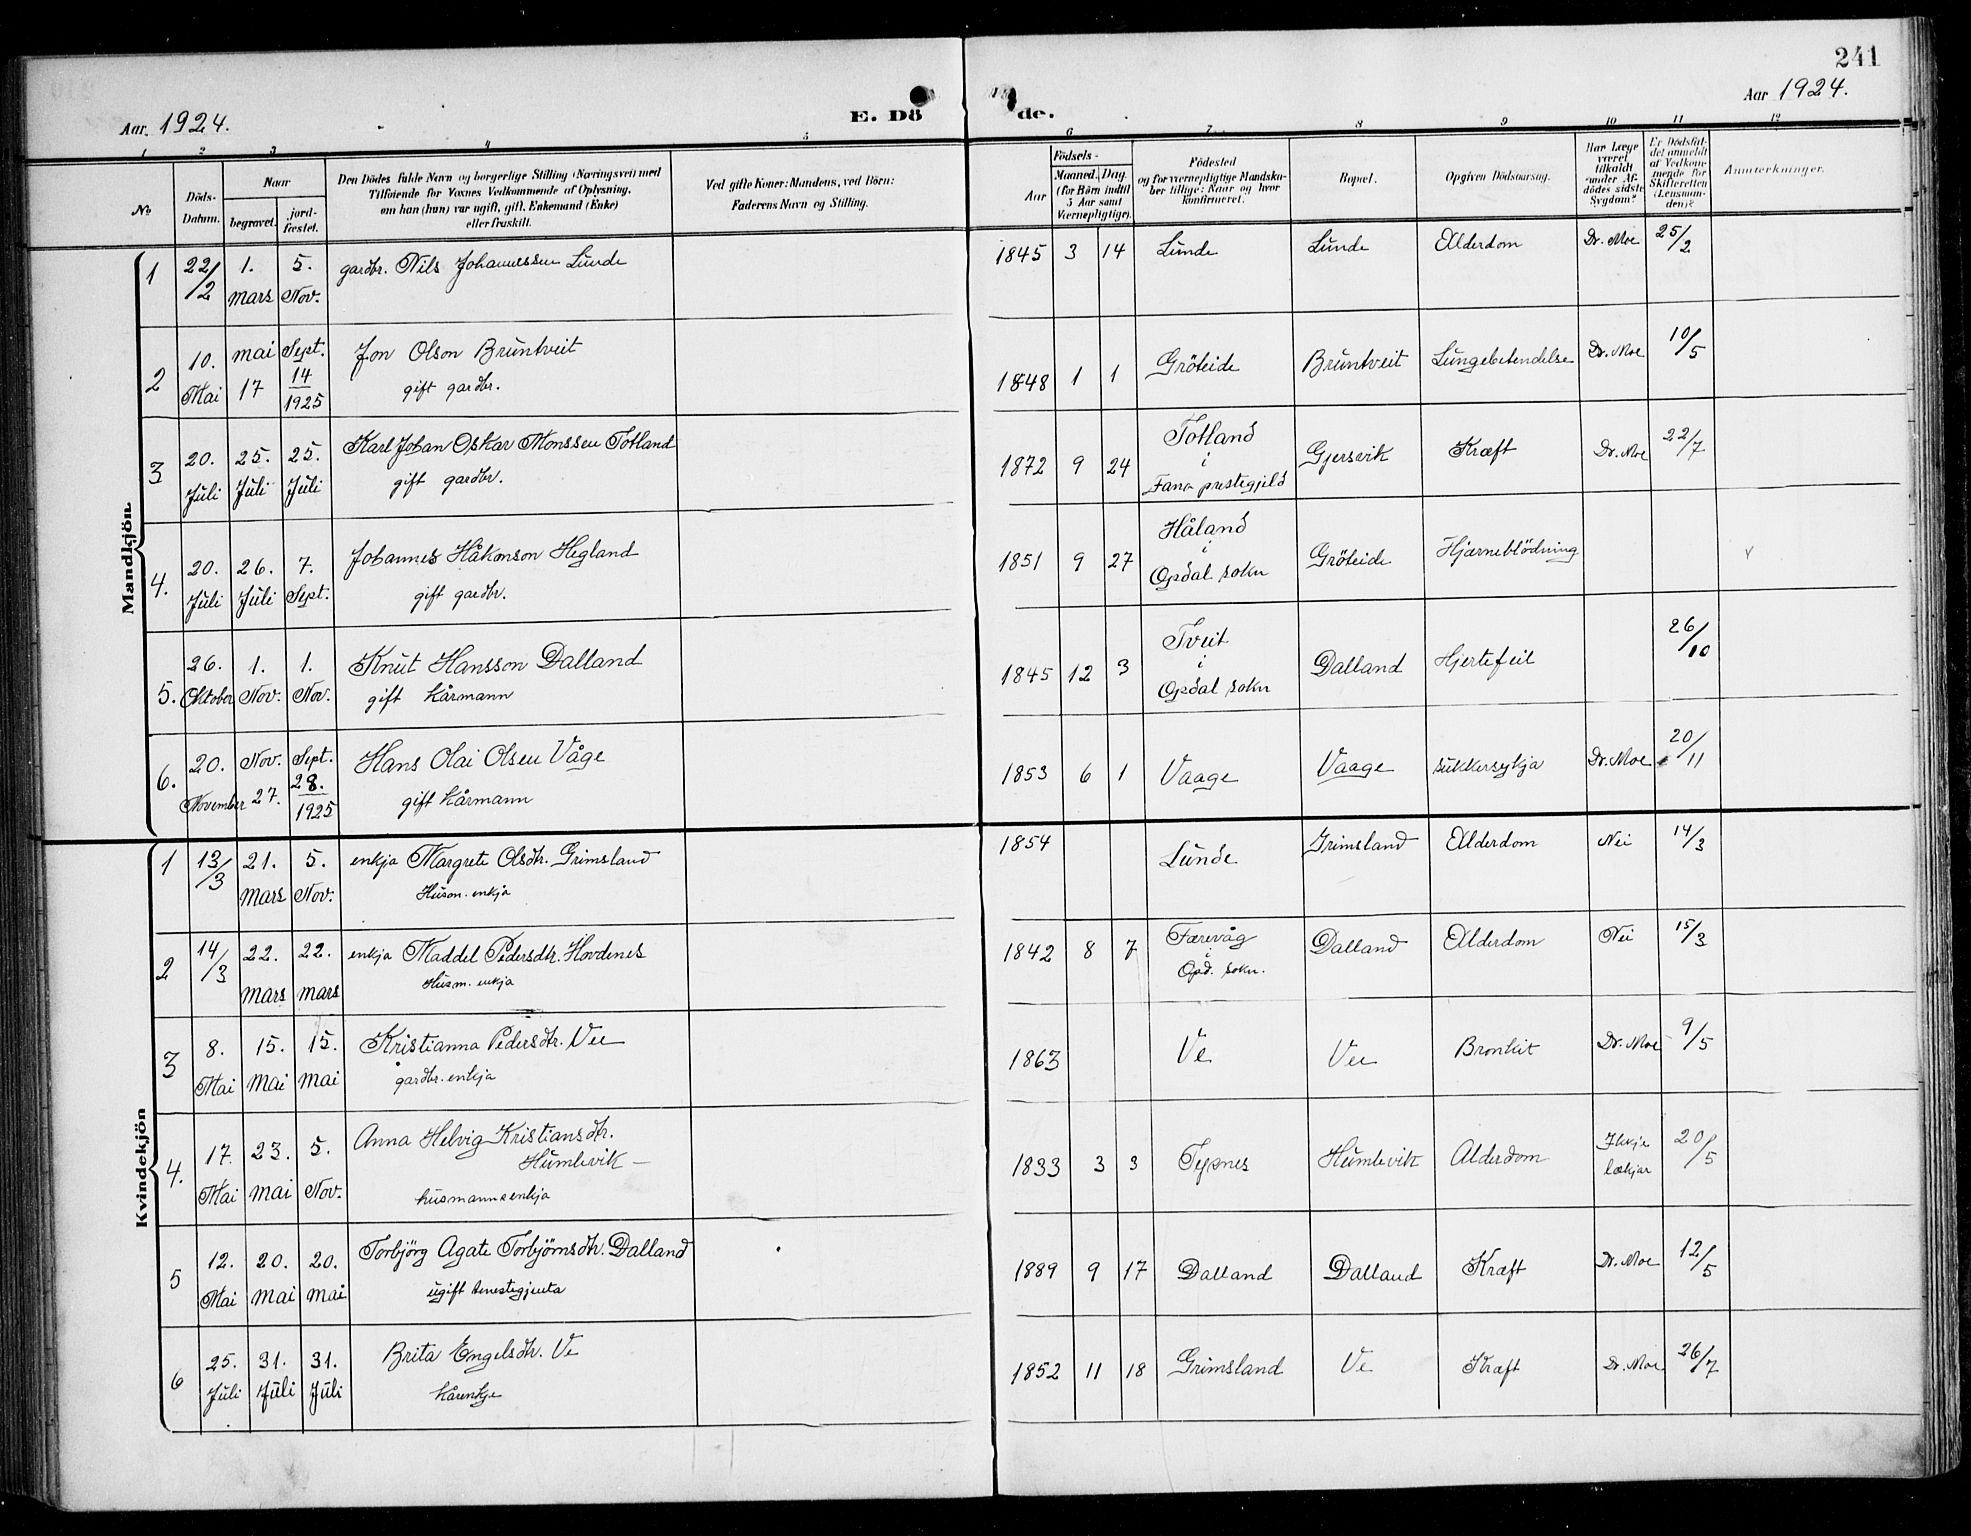 241
Aar. 1924.
E. Dö
de.
Aar 1924.
1 2 3 4 5 6 7 8 9 10 11 12
No
Döds-
Datum.
Naar
begravet.
jord-
fæstet.
Den Dödes fulde Navn og borgerlige Stilling (Næringsvei) med
Tilföiende for Voxnes Vedkommende af Oplysning,
om han (hun) var ugift, gift, Enkemand (Enke)
eller fraskilt.
Ved gifte Koner: Mandens, ved Börn:
Faderens Navn og Stilling.
Födsels-
Aar
Maaned. Dag.
(for Börn indtil
3 Aar samt
Værnepligtige).
Födested
og for værnepligtige Mandskaber
tillige: Naar og hvor
konfirmeret.
Bopæl.
Opgiven Dödsaarsag.
Har Læge
været
tilkaldt
under Af-
dödes sidste
Sygdom?
Er Dödsfal-
det anmeldt
af Vedkom-
mende for
Skifteretten
(Lensman-
den)?
Anmerkninger.
Mandkjön.
1 22/2 1. mars 5. Nov. gardbr. Nils Johannessen Lunde 1845 3 14 Lunde Lunde Alderdom Dr. Moe 25/2
2 10. Mai mai 17 Sept. 14 1925 Jon Olson Bruntveit
gift gardbr. 1848 1 1 Gröteide Bruntveit Lungebetendelse Dr. Moe 10/5
3 20. Juli 25. Juli 25. Juli Karl Johan Oskar Monssen Totland
gift gardbr. 1872 9 24 Totland i Fana prestegjeld Gjersvik Kræft Dr. Moe 22/7
4. 20. Juli 26. Juli 7. Sept. Johannes Håkonson Hegland
gift gardbr. 1851 9 27 Håland i Opdal sokn Gröteide Hjerneblödning v
5. 26. Oktober 1. Nov. 1. Nov. Knut Hansson Dalland
gift kårmann 1845 12 3 Tveit i Opdal sokn Dalland Hjertefeil 26/10
6. 20. November Nov. 27. Sept. 28. 1925 Hans Olai Olsen Våge
gift kårmann 1853 6 1 Vaage Vaage sukkersykja Dr. Moe 20/11
Kvindekjön
1 13/3 21. mars 5. Nov. enkja Margrete Olsdtr. Grimsland
Husm. enkja 1854 Lunde Grimsland Alderdom Nei 14/3
2 14/3 22. mars 22. mars enkja Maddel Pedersdtr. Hovdenes
Husm. enkja 1842 8 7 Færevåg i Opd. sokn. Dalland Alderdom Nei 15/3
3 8. Mai 15. mai 15. mai Kristianna Pedersdtr. Vee
gardbr. enkja 1863 Ve Vee Bronkit Dr. Moe 9/5
4. 17. Mai 23. mai 5. Nov. Anna Helvig Kristiansdtr.
Humlevik
husmannsenkja 1833 3 3 Tysnes Humlevik Alderdom Ikkje lækjar 20/5
5 12. Mai 20. mai 20. mai Torbjörg Agate Torbjörnsdtr. Dalland
ugift tenestegjenta 1889 9 17 Dalland Dalland Kræft Dr. Moe 12/5
6 25. Juli 31. Juli 31. Juli Brita Engelsdtr. Ve
kårenkje 1852 11 18 Grimsland Ve Kræft Dr. Moe 26/7